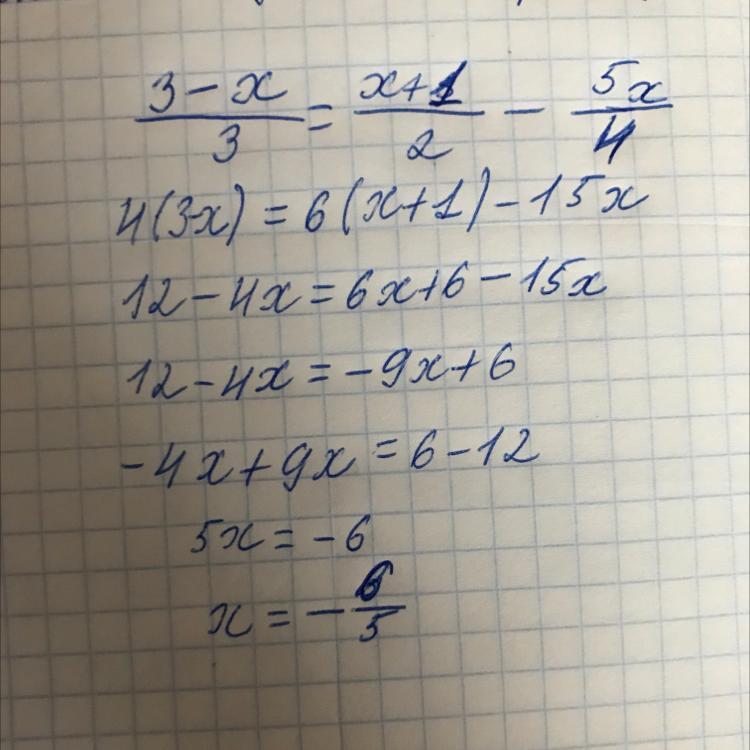 3-x/3 = x+1/2 - 5x/4
4(3-x) = 6(x+1)-15x
12-4x=6x+6-15x
12-4x=-9x+6
-4x+9x=6-12
5x=-6
x=-6/5